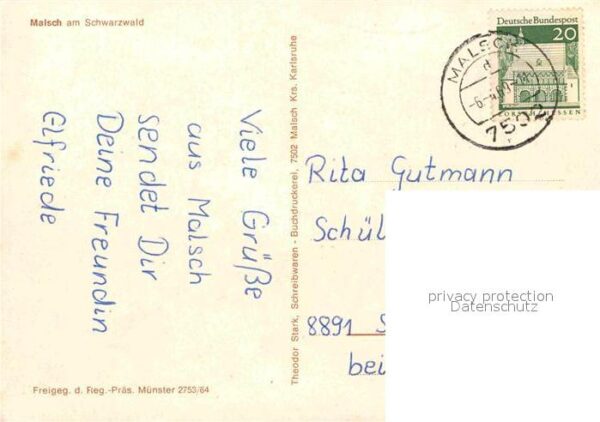 Malsch am Schwarzwald
Viele Grüße
aus Malsch
sendet Dir
Deine Freundin
Elfriede
Freigeg. d. Reg.-Präs. Münster 2753/64
Theodor Stark, Schreibwaren - Buchdruckerei, 7502 Malsch Krs. Karlsruhe
Deutsche Bundespost
20
MALSCH
d
7502
Rita Gutmann
Schül
8891
bei
privacy protection
Datenschutz